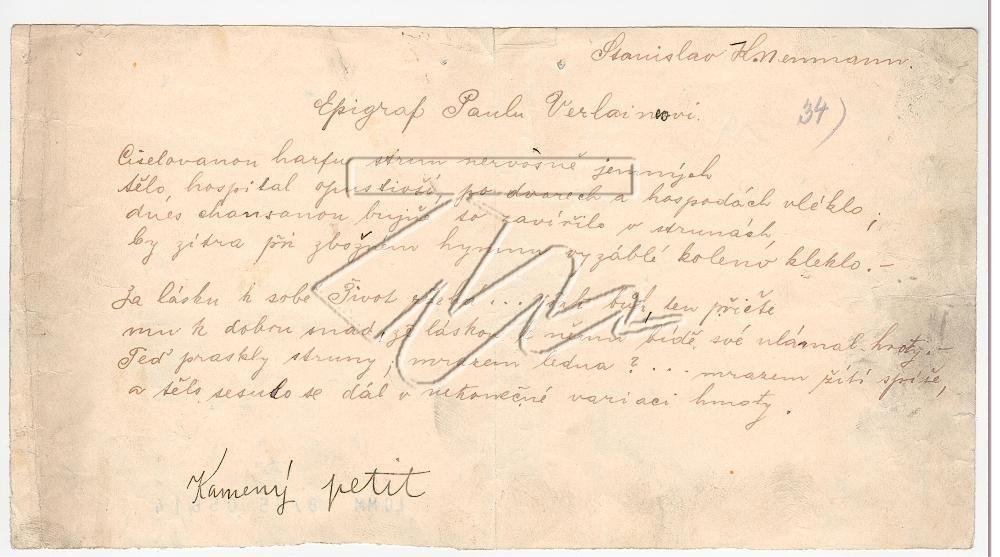 Stanislav K. Neumann.
Epigraf Paulu Verlaineovi.
34)
Ciselovanou harfu strun nervosně jemných
tělo, hospital opustivší, po dvorech a hospodách vléklo;
dnes chansonou bujnou to zavířilo v strunách,
by zítra při zbožném hymnu vyzáblé koleno kleklo. –
Za lásku k sobě Život ... bůh, ten přičte
mu k dobru snad, že láskou k němu bídě své ulámal hroty. –
Teď praskly struny, mrazem ledna? ... mrazem žití spíše,
a tělo sesulo se dál v nekonečné variaci hmoty.
Kamený petit